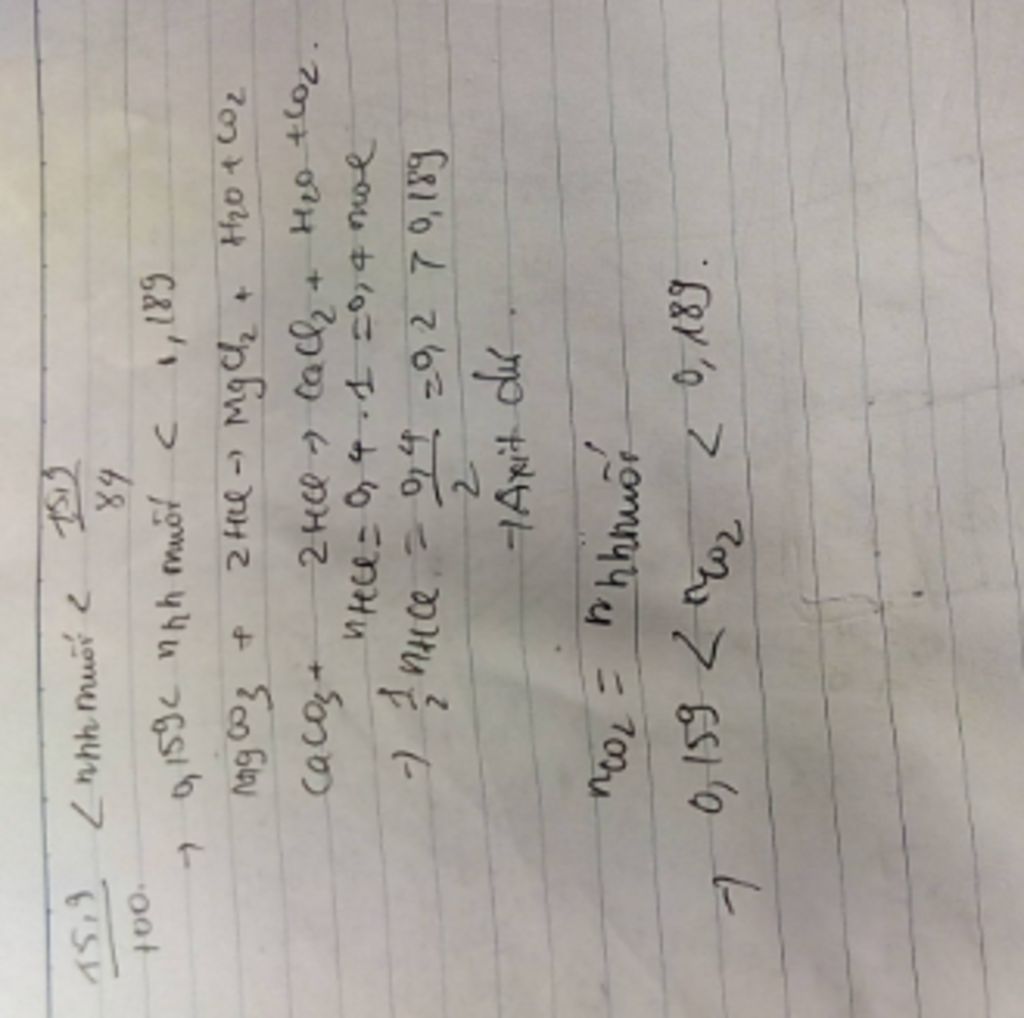 15,9/100 < nhh muối < 15,9/84
→ 0,159 < nhh muối < 1,189
MgCO3 + 2HCl → MgCl2 + H2O + CO2
CaCO3 + 2HCl → CaCl2 + H2O + CO2.
nHCl = 0,4 . 1 = 0,4 mol
→ 1/2 nHCl = 0,4/2 = 0,2 > 0,189
→ Axit dư.
nCO2 = nhh muối
→ 0,159 < nCO2 < 0,189.